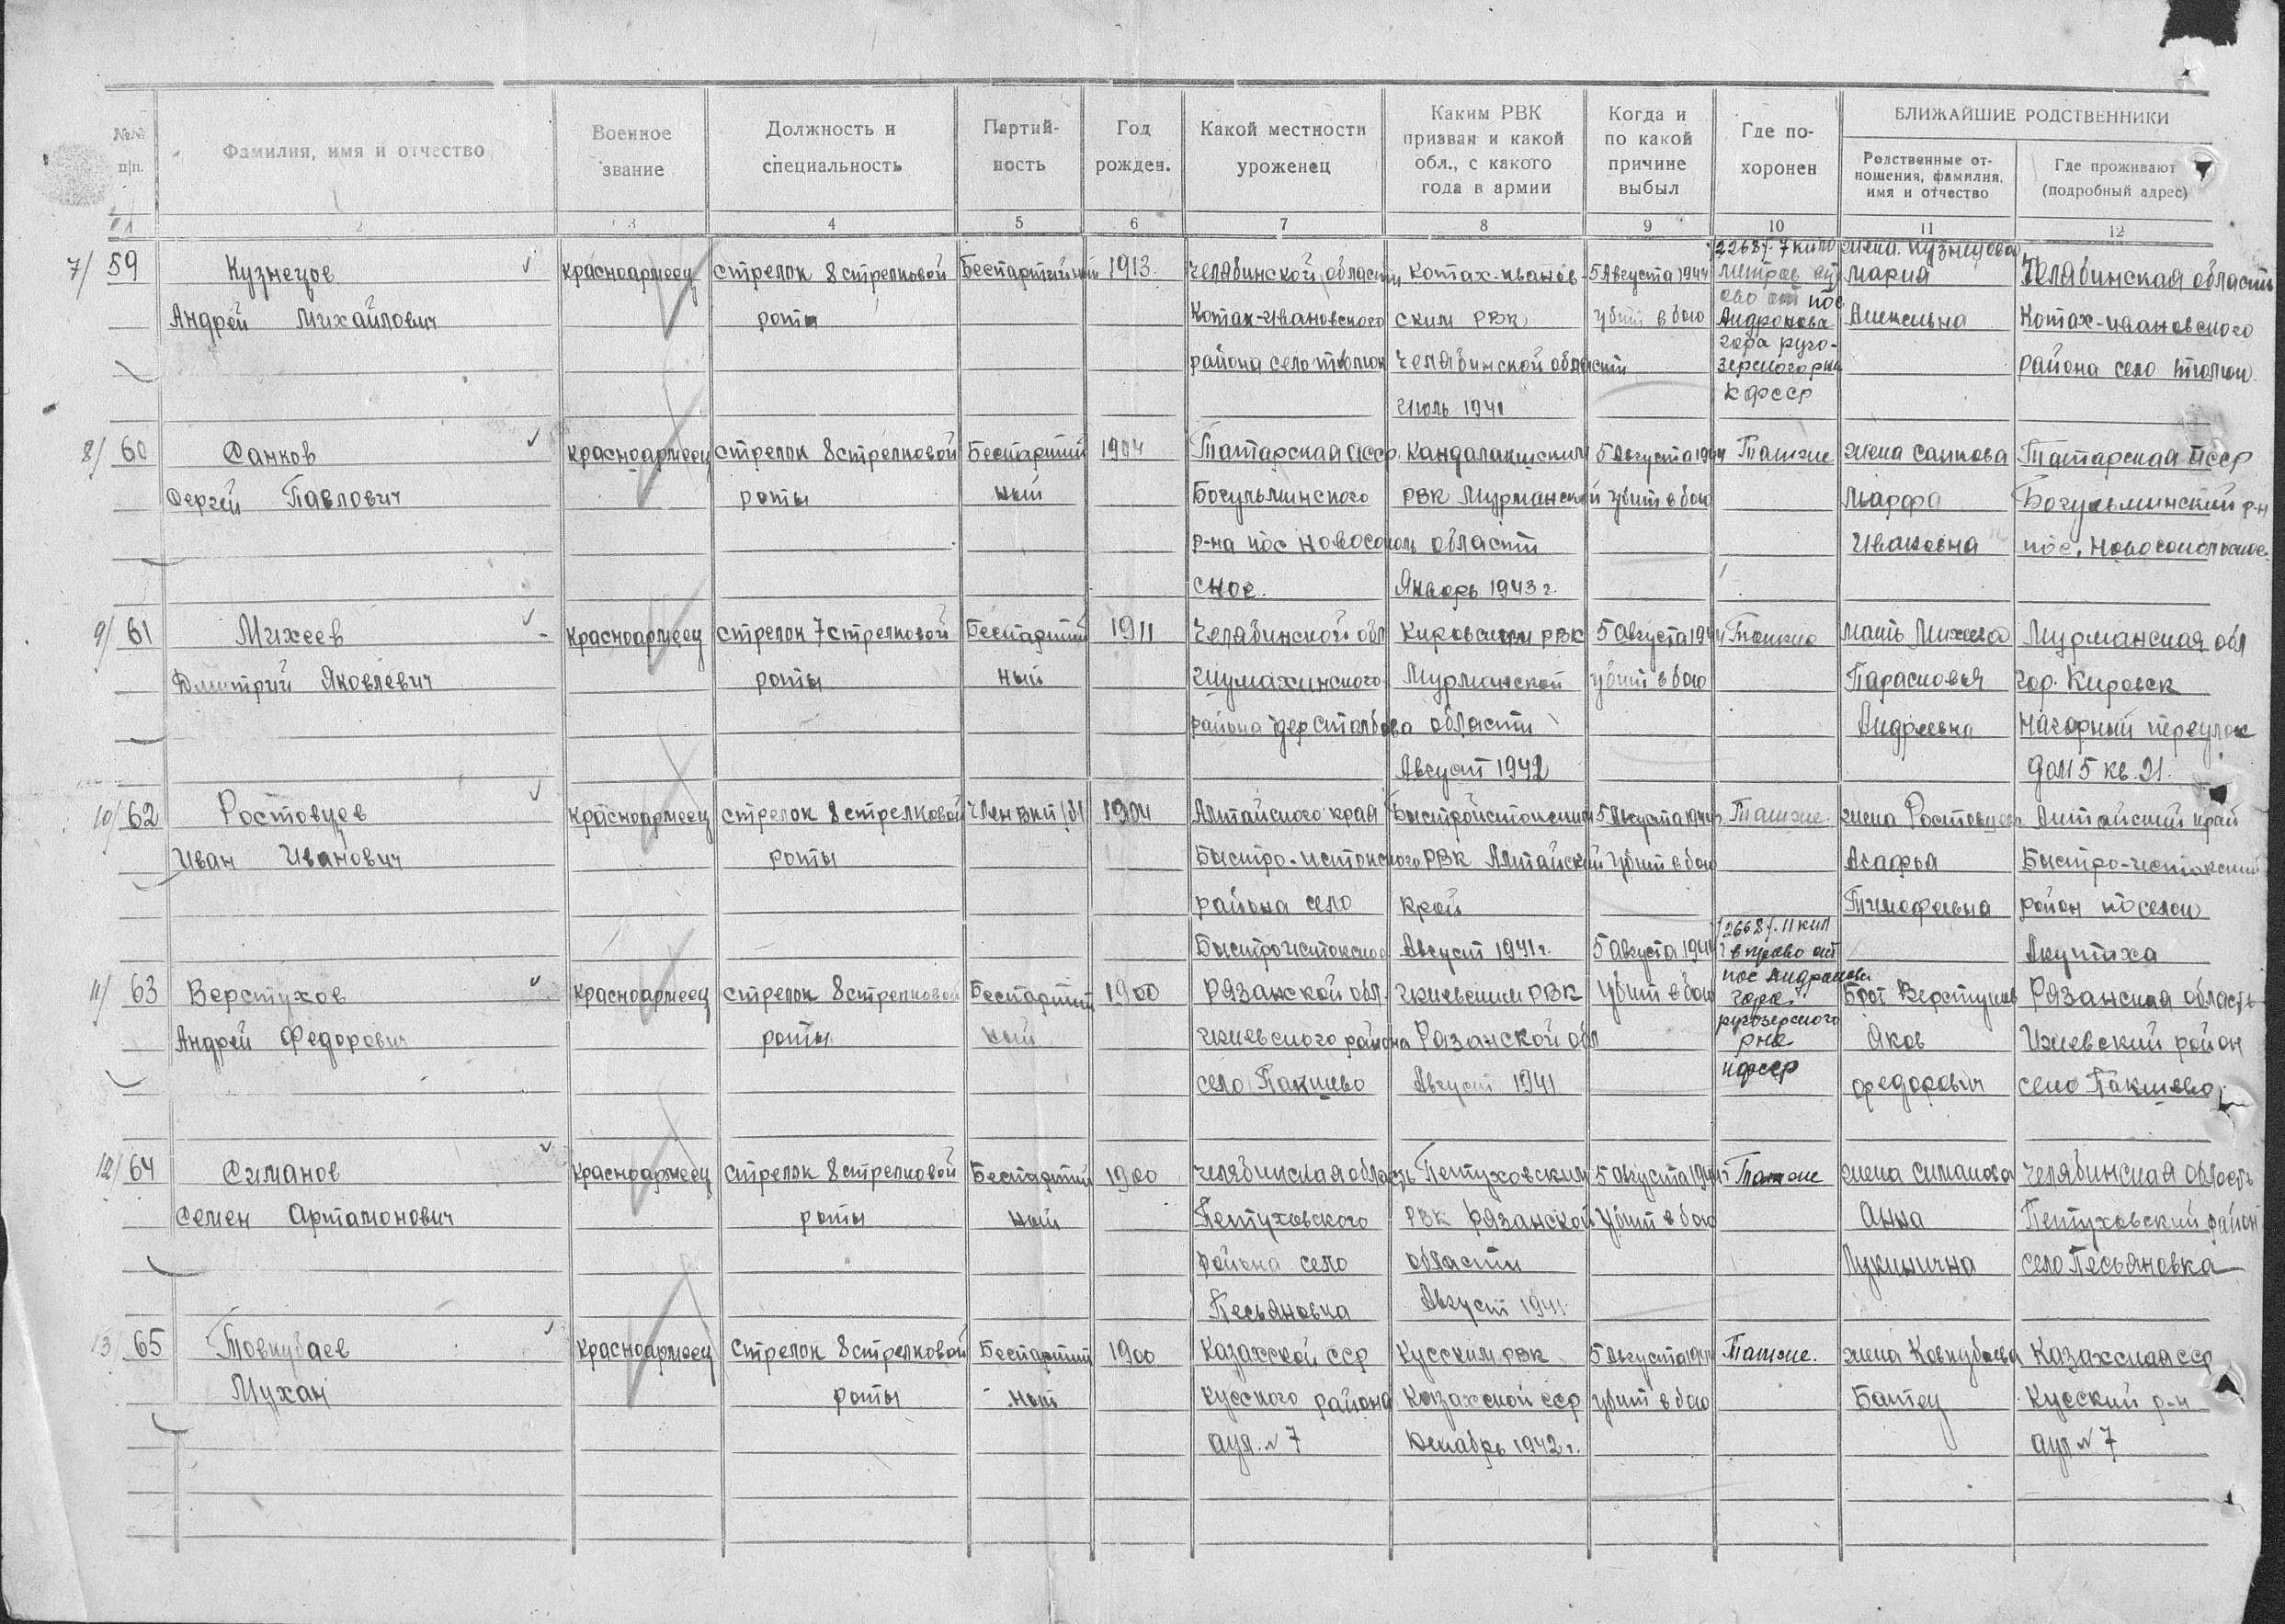 №№ п/п.
Фамилия, имя и отчество
Военное звание
Должность и специальность
Партий-ность
Год рожден.
Какой местности уроженец
Каким РВК призван и какой обл., с какого года в армии
Когда и по какой причине выбыл
Где по-хоронен
БЛИЖАЙШИЕ РОДСТВЕННИКИ
Родственные от-ношения, фамилия, имя и отчество
Где проживают (подробный адрес)
1 2 3 4 5 6 7 8 9 10 11 12
2268/. 7 кило жена. Кузнецова
7/ 59 Кузнецов Красноармеец стрелок 8 стрелковой Беспартийный 1913. Челябинской области Котах-иванов- 5 Августа 1944 метров Мария Челябинская область
Андрей Михайлович роты Котах-Ивановского ским РВК убит в бою пос Андронова Котах-ивановского
района село Челябинской области гора руго-зерского р-на района село
Июль 1941 КФССР
8/ 60 Санков Красноармеец стрелок 8 стрелковой Беспартий 1904 Татарская АССР, Кандалакшским 5 Августа 1944 Также жена Санкова Татарская АССР
Сергей Павлович роты ный Богульминского РВК Мурманской убит в бою Марфа Богульминский р-н
р-на пос Новосоколь области Ивановна пос.
ское. Январь 1943 г.
9/ 61 Михеев Красноармеец стрелок 7 стрелковой Беспартий 1911 Челябинской обл Кировским РВК 5 Августа 1944 Также мать Михеева Мурманская обл
Дмитрий Яковлевич роты ный Шумахинского Мурманской убит в бою Парасковья гор. Кировск
района дер Столбова области Андреевна Нагорный переулок
Август 1942 дом 5 кв. 21.
10/ 62 Ростовцев Красноармеец стрелок 8 стрелковой Член ВКП(б) 1904 Алтайского края Быстроистокским 5 Августа 1944 Также. жена Ростовцева Алтайский край
Иван Иванович роты Быстро-истокского РВК Алтайский убит в бою Агафья Быстро-истокский
района село край Тимофеевна район поселок
Быстроистокское Август 1941 г. 5 Августа 1944 2668/. 11 кил вправо от Акутиха
11/ 63 Верстухов Красноармеец стрелок 8 стрелковой Беспартий 1900 Рязанской обл. Ижевским РВК убит в бою пос Андронова гора Брат Верстухов Рязанская область
Андрей Федорович роты ный Ижевского района Рязанской обл ругозерского р-на Яков Ижевский район
село Макшево Август 1941 КФССР Федорович село Макшево
12/ 64 Симанов Красноармеец стрелок 8 стрелковой Беспартий 1900 Челябинская область Петуховским 5 Августа 1944 Также жена Симанова Челябинская область
Семен Артамонович роты ный Петуховского РВК Рязанской убит в бою Анна Петуховский район
района село области Лукинична село Песьяновка
Песьяновка Август 1941
13/ 65 Товкубаев Красноармеец Стрелок 8 стрелковой Беспартий 1900 Казахской ССР Кусским РВК 5 Августа 1944 Также. жена Ковкубаева Казахская ССР
Мухан роты ный Кусского района Казахской ССР убит в бою Батец Кусский р-н
аул. № 7 Декабрь 1942 г. аул № 7